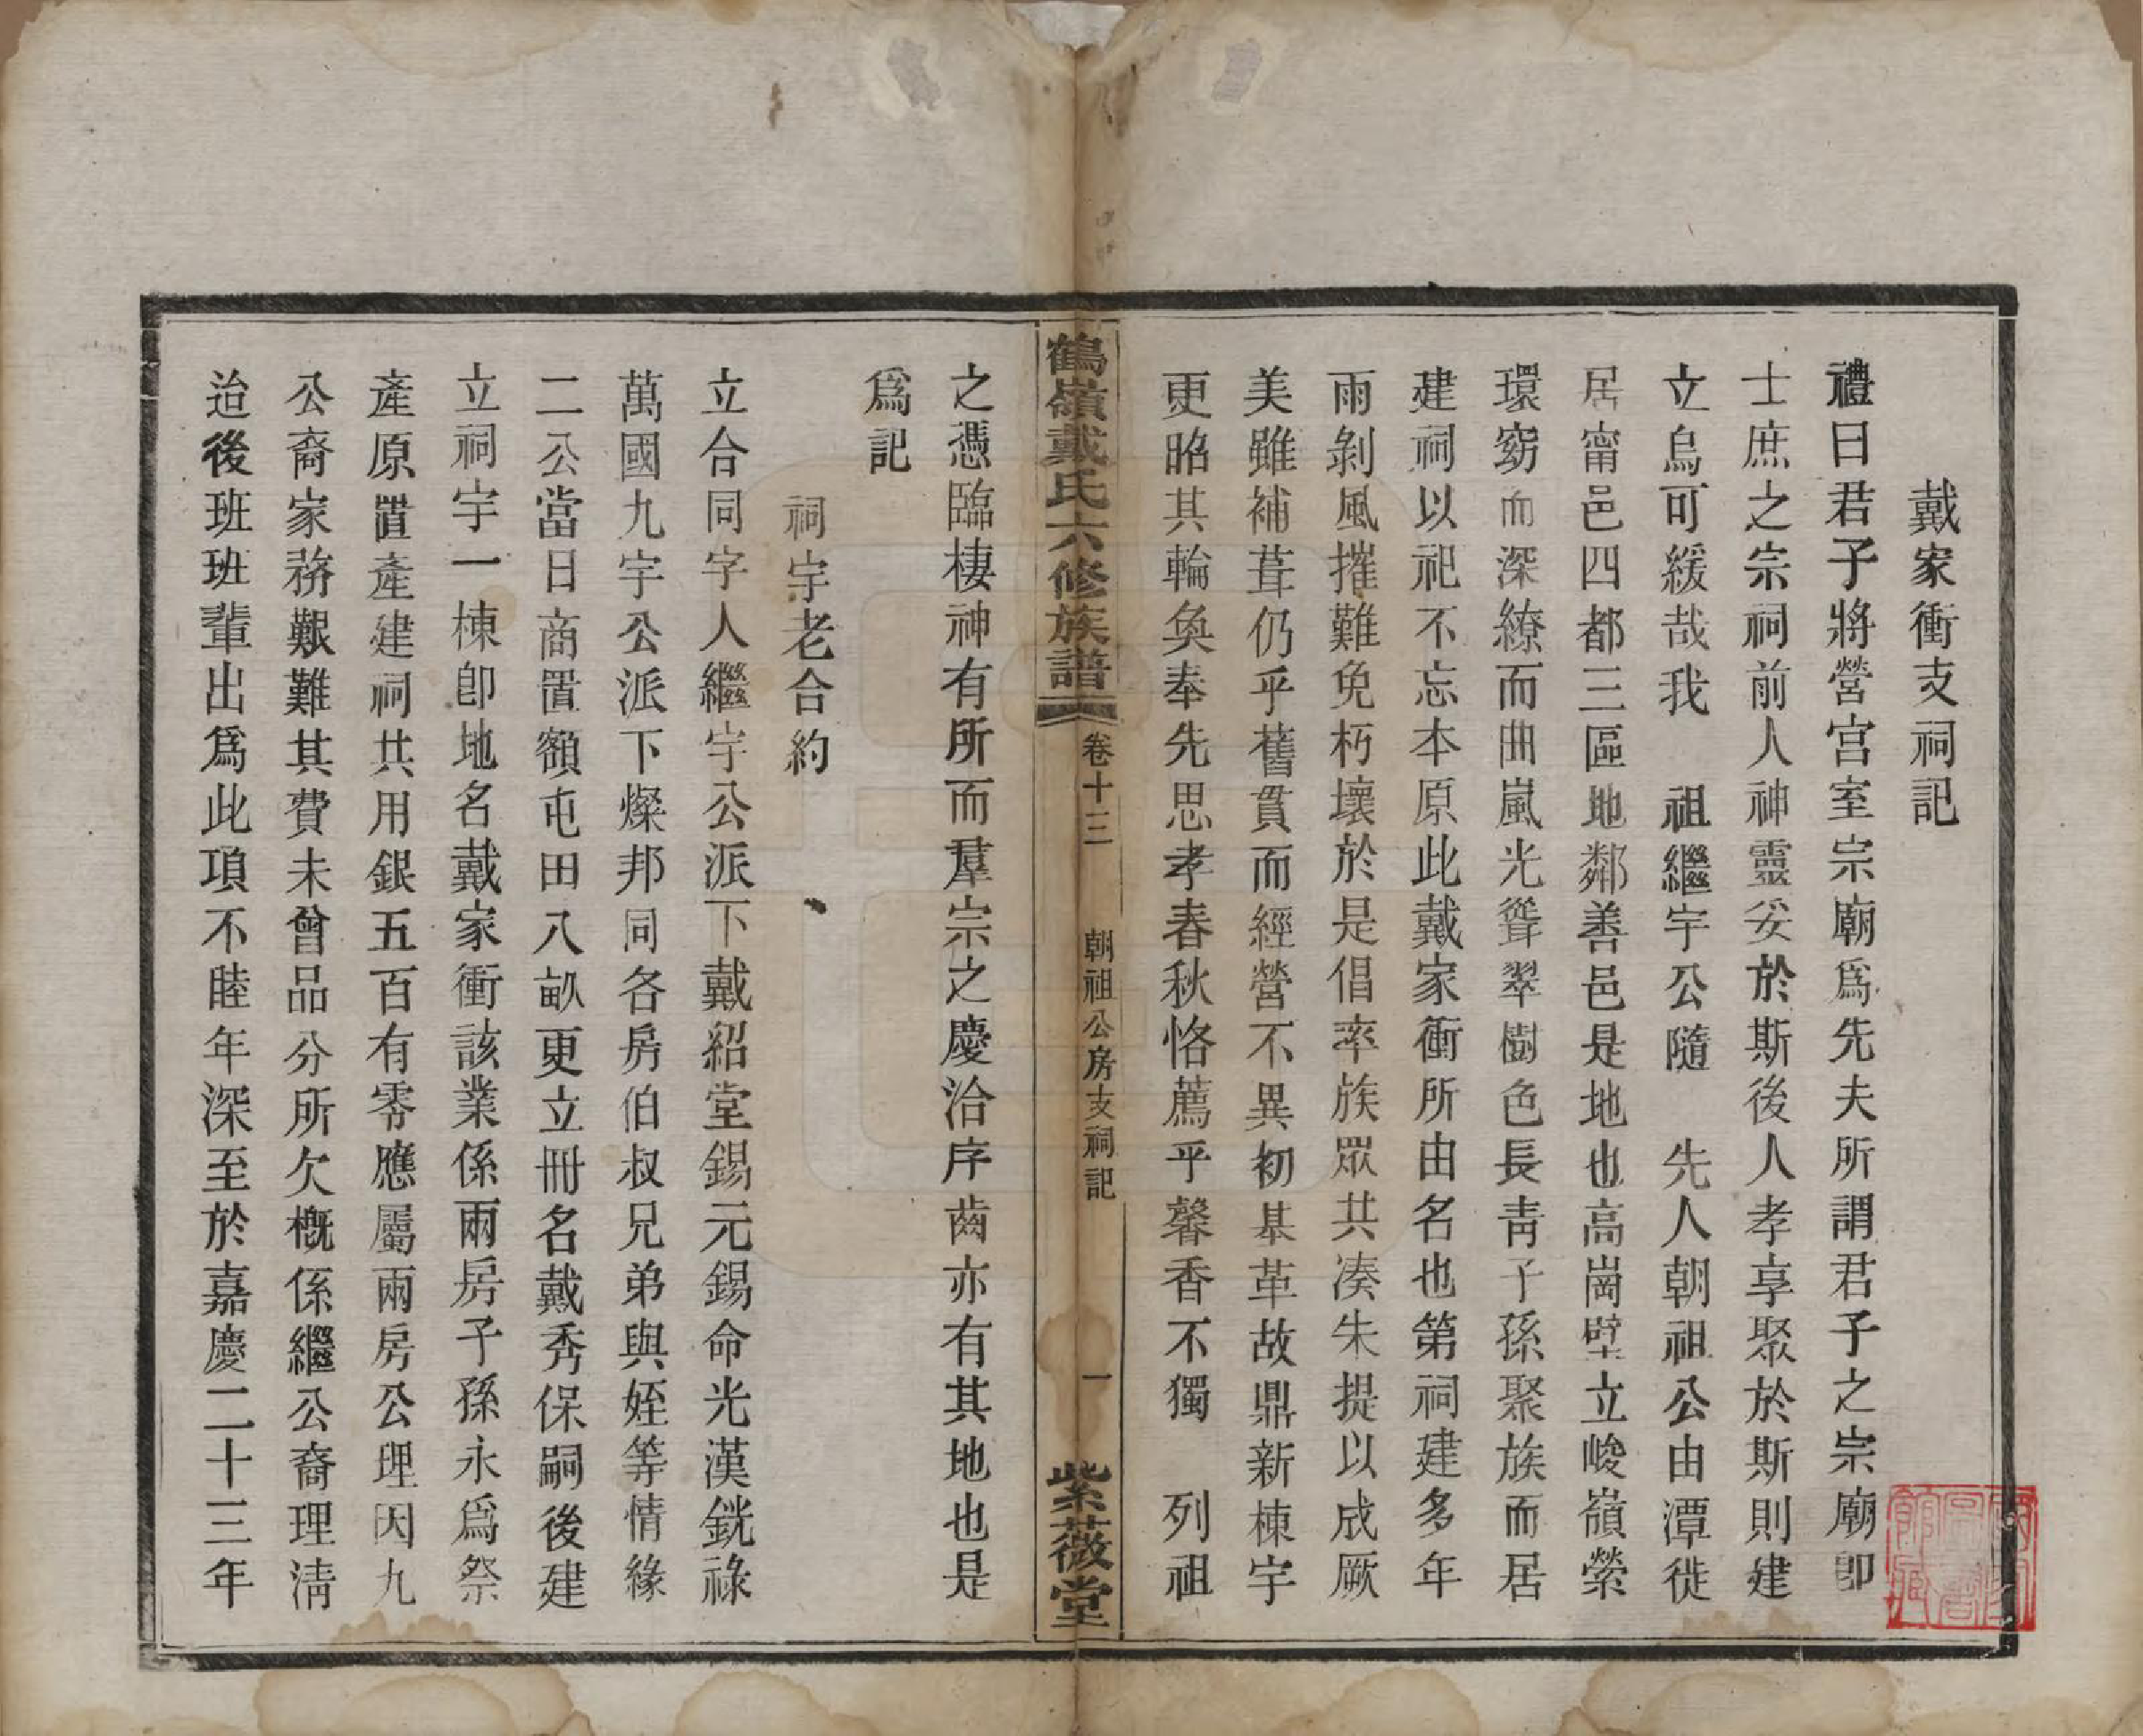 戴家衝支祠記
禮曰君子將營宮室宗廟爲先夫所謂君子之宗廟卽
士庶之宗祠前人神靈妥於斯後人孝享聚於斯則建
立烏可緩哉我　祖繼宇公隨　先人朝祖公由潭徙
居甯邑四都三區地鄰善邑是地也高崗壁立峻嶺縈
環窈而深繚而曲嵐光聳翠樹色長青子孫聚族而居
建祠以祀不忘本原此戴家衝所由名也第祠建多年
雨剝風摧難免朽壞於是倡率族眾共凑朱提以成厥
美雖補葺仍乎舊貫而經營不異初基革故鼎新棟宇
更昭其輪奐奉先思孝春秋恪薦乎馨香不獨　列祖
鶴嶺戴氏六修族譜　卷十三　朝祖公房支祠記　一　紫薇堂
之憑臨棲神有所而羣宗之慶洽序齒亦有其地也是
爲記
祠宇老合約
立合同字人繼宇公派下戴紹堂錫元錫命光漢銧祿
萬國九宇公派下燦邦同各房伯叔兄弟與姪等情緣
二公當日商置額屯田八畝更立冊名戴秀保嗣後建
立祠宇一棟卽地名戴家衝該業係兩房子孫永爲祭
產原置產建祠共用銀五百有零應屬兩房公理因九
公裔家務艱難其費未曾品分所欠槪係繼公裔理淸
迨後班班輩出爲此項不睦年深至於嘉慶二十三年